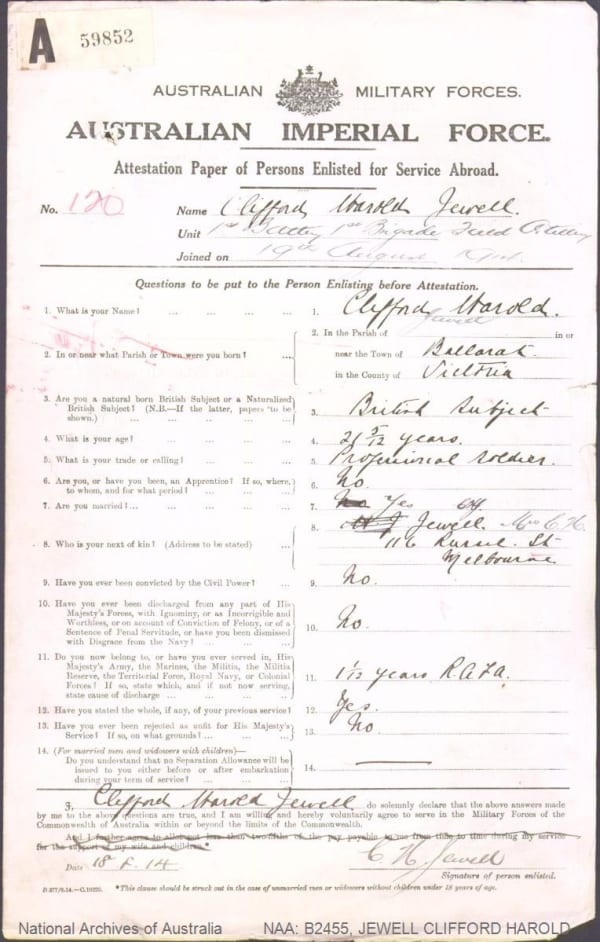 A 59852
AUSTRALIAN MILITARY FORCES.
AUSTRALIAN IMPERIAL FORCE.
Attestation Paper of Persons Enlisted for Service Abroad.
No. 120 Name Clifford Harold Jewell.
Unit 1st Battery 1st Brigade Field Artillery
Joined on 19th August 1914
Questions to be put to the Person Enlisting before Attestation.
1. What is your Name? ... ... ... 1. Clifford Harold.
Jewell
2. In or near what Parish or Town were you born? ... 2. In the Parish of in or
near the Town of Ballarat
in the County of Victoria
3. Are you a natural born British Subject or a Naturalized
British Subject? (N.B.—If the latter, papers to be
shown.) ... ... ... ... 3. British Subject
4. What is your age? ... ... ... 4. 21 5/12 years.
5. What is your trade or calling? ... ... ... 5. Professional Soldier.
6. Are you, or have you been, an Apprentice? If so, where,
to whom, and for what period? ... ... ... 6. No
7. Are you married? ... ... ... ... 7. No Yes
8. Who is your next of kin? (Address to be stated) ... 8. Jewell. Mrs C. H.
116 Russell St
Melbourne
9. Have you ever been convicted by the Civil Power? ... 9. No.
10. Have you ever been discharged from any part of His
Majesty's Forces, with Ignominy, or as Incorrigible and
Worthless, or on account of Conviction of Felony, or of a
Sentence of Penal Servitude, or have you been dismissed
with Disgrace from the Navy? ... ... ... 10. No.
11. Do you now belong to, or have you ever served in, His
Majesty's Army, the Marines, the Militia, the Militia
Reserve, the Territorial Force, Royal Navy, or Colonial
Forces? If so, state which, and if not now serving,
state cause of discharge ... ... ... 11. years R.A.F.A.
12. Have you stated the whole, if any, of your previous service? 12. Yes.
13. Have you ever been rejected as unfit for His Majesty's
Service? If so, on what grounds? ... ... ... 13. No
14. (For married men and widowers with children)—
Do you understand that no Separation Allowance will be
issued to you either before or after embarkation
during your term of service? ... ... ... 14. ———
I, Clifford Harold Jewell do solemnly declare that the above answers made
by me to the above questions are true, and I am willing and hereby voluntarily agree to serve in the Military Forces of the
Commonwealth of Australia within or beyond the limits of the Commonwealth.
And I further agree to allot not less than two-fifths of the pay payable to me from time to time during my service
for the support of my wife and children.*
Date 18. 8. 14 C. H. Jewell
Signature of person enlisted.
*This clause should be struck out in the case of unmarried men or widowers without children under 18 years of age.
National Archives of Australia NAA: B2455, JEWELL CLIFFORD HAROLD